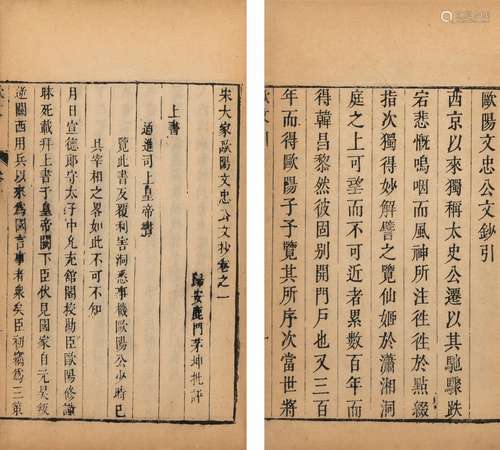 歐陽文忠公文鈔引
西京以來獨稱太史公遷以其馳驟跌
宕悲慨嗚咽而風神所注徃徃於點綴
指次獨得妙解譬之覽仙姬於瀟湘洞
庭之上可望而不可近者累數百年而
得韓昌黎然彼固別開門戶也又三百
年而得歐陽子予覽其所序次當世將
宋大家歐陽文忠公文抄卷之一
歸安鹿門茅坤批評
上書
通進司上皇帝書
覽此書反覆利害洞悉事機歐陽公少時已
具宰相之畧如此不可不知
月日宣德郎守太子中允充館閣校勘臣歐陽修謹
昧死載拜上書于皇帝闕下臣伏見國家自元昊叛
逆關西用兵以來爲國言事者衆矣臣初竊爲三策